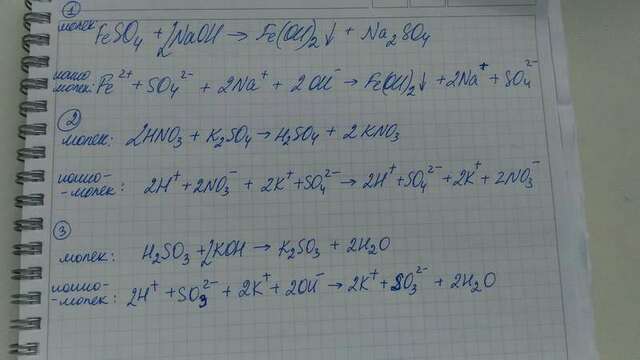 ①
молек: FeSO₄ + 2NaOH → Fe(OH)₂↓ + Na₂SO₄
ионно
молек: Fe²⁺ + SO₄²⁻ + 2Na⁺ + 2OH⁻ → Fe(OH)₂↓ + 2Na⁺ + SO₄²⁻
②
молек: 2HNO₃ + K₂SO₄ → H₂SO₄ + 2KNO₃
ионно-
-молек: 2H⁺ + 2NO₃⁻ + 2K⁺ + SO₄²⁻ → 2H⁺ + SO₄²⁻ + 2K⁺ + 2NO₃⁻
③
молек: H₂SO₃ + 2KOH → K₂SO₃ + 2H₂O
ионно-
-молек: 2H⁺ + SO₃²⁻ + 2K⁺ + 2OH⁻ → 2K⁺ + SO₃²⁻ + 2H₂O